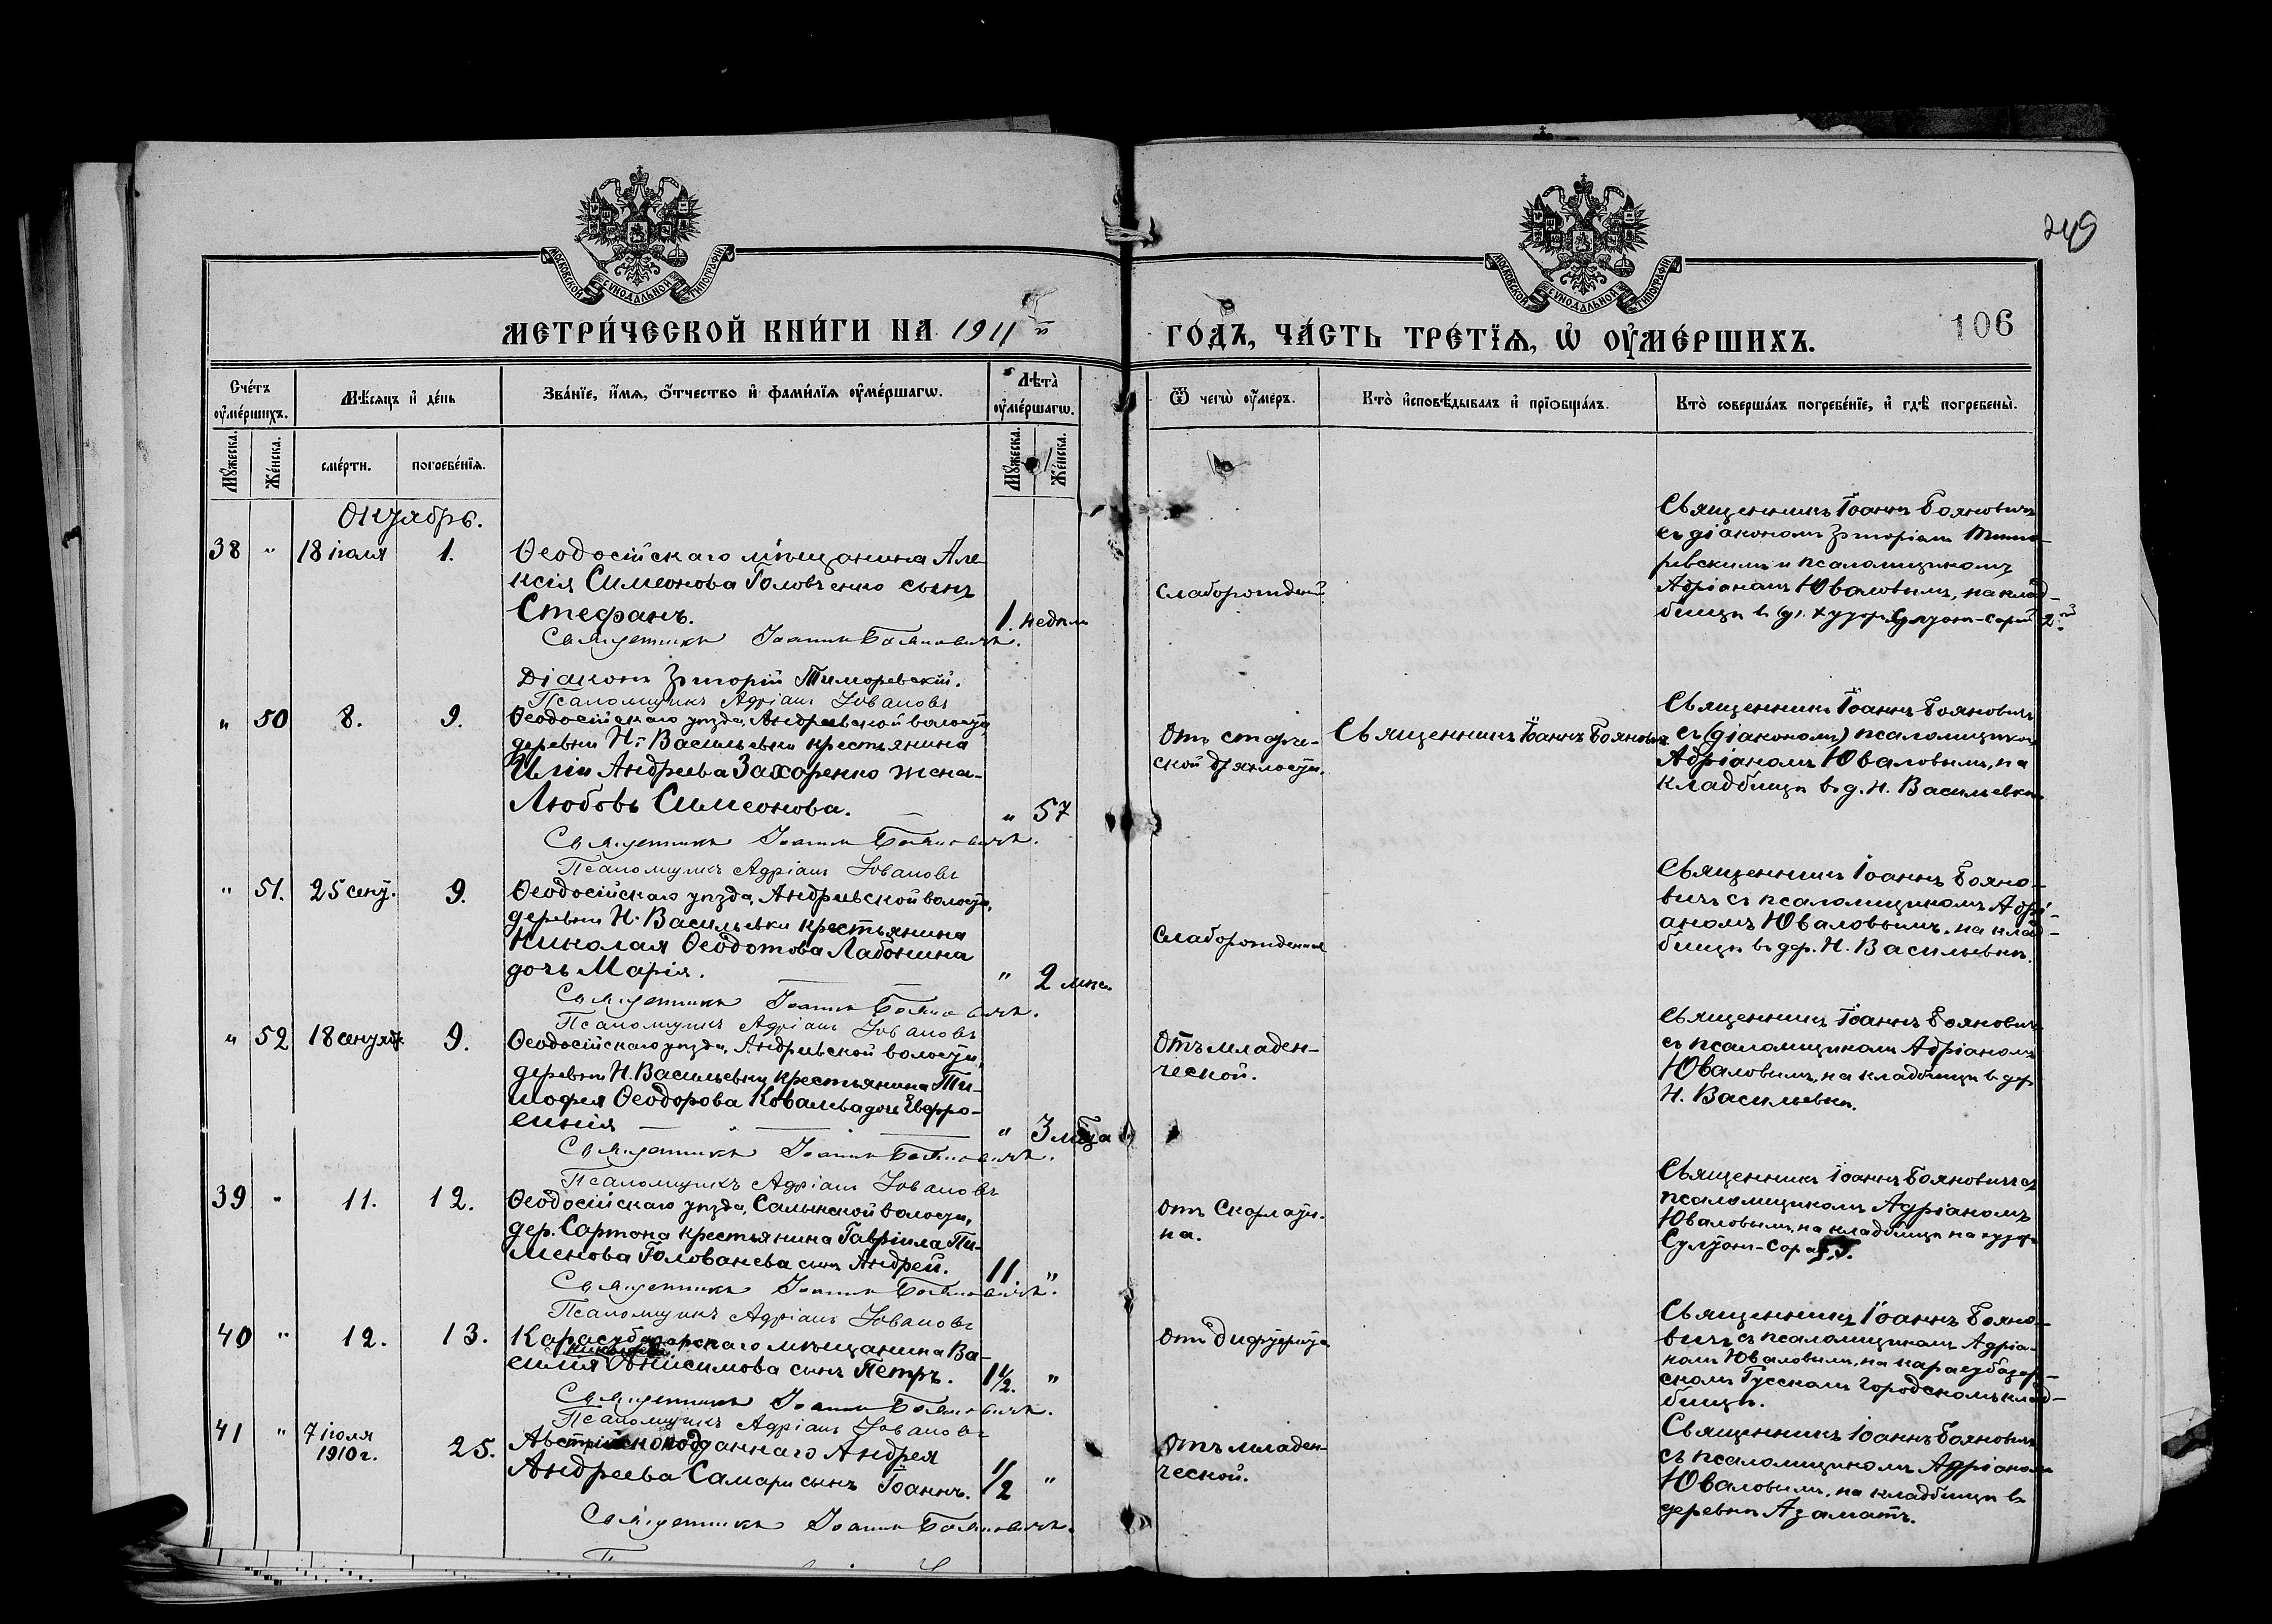 249
МОСКОВСКОЙ СѴНОДАЛЬНОЙ ТИПОГРАФІИ
МОСКОВСКОЙ СѴНОДАЛЬНОЙ ТИПОГРАФІИ
МЕТРИ́ЧЕСКОЙ КНИ́ГИ НА 1911 й
ГО́ДЪ, ЧА́СТЬ ТРЕ́ТЇѦ, Ѡ҆ ОУ҆МЕ́РШИХЪ.
106
Сче́тъ оу҆ме́ршихъ.
Мѣ́сѧцъ и҆ де́нь
Зва́нїе, и҆́мѧ, ѻ҆́тчество и҆ фами́лїѧ оу҆ме́ршагѡ.
Лѣ́та̀ оу҆ме́ршагѡ.
Ѿ чегѡ̀ оу҆́меръ.
Кто̀ и҆сповѣ́дывалъ и҆ прїѻбща́лъ.
Кто̀ соверша́лъ погребе́нїе, и҆ гдѣ̀ погребены̀.
Мꙋ́жеска.
Же́нска.
сме́рти.
погребе́нїѧ.
Мꙋ́жеска.
Же́нска.
Октябрь.
38 " 18 іюля 1.
Ѳеодосійскаго мѣщанина Але-
ксія Симеонова Головченко сынъ
Стефанъ.
1. недѣли
Священникъ Іоаннъ Бояновичъ.
Діаконъ Тиморевскій.
Псаломщикъ Адріанъ Юваловъ
Слаборожденій
Священникъ Іоаннъ Бояновичъ
съ діакономъ
и псаломщикомъ
Адріаномъ Юваловымъ, на клад-
бищѣ в хутор. Султан-Сарай 2й
" 50 8. 9.
Ѳеодосійскаго уѣзда, Андреевской волости,
деревни Н. Васильевки крестьянина
Иліи Андреева Захаренко жена
Любовь Симеонова.
" 57
Священникъ Іоаннъ Бояновичъ.
Псаломщикъ Адріанъ Юваловъ
Отъ старче-
ской дряхлости.
Священникъ Іоаннъ Бояновичъ
Священникъ Іоаннъ Бояновичъ
съ (діакономъ) псаломщикомъ
Адріаномъ Юваловымъ, на
кладбищѣ въ д. Н. Васильевки
" 51. 25 сент. 9.
Ѳеодосійскаго уѣзда, Андреевской волости,
деревни Н. Васильевки крестьянина
Николая Ѳеодотова Лабонина
дочь Марія.
" 2 мѣс.
Священникъ Іоаннъ Бояновичъ.
Псаломщикъ Адріанъ Юваловъ
Слаборожденная
Священникъ Іоаннъ Бояно-
вичъ съ псаломщикомъ Адрі-
аномъ Юваловымъ, на клад-
бищѣ въ дер. Н. Васильевки.
" 52 18 сентяб. 9.
Ѳеодосійскаго уѣзда, Андреевской волости,
деревни Н. Васильевки крестьянина Ти-
моѳея Ѳеодорова Ковалева дочь Евфро-
синія
" 3 мѣсяца
Священникъ Іоаннъ Бояновичъ.
Псаломщикъ Адріанъ Юваловъ
Отъ младен-
ческой.
Священникъ Іоаннъ Бояновичъ
съ псаломщикомъ Адріаномъ
Юваловымъ, на кладбищѣ в дер.
Н. Васильевки.
39 " 11. 12.
Ѳеодосійскаго уѣзда, Салынской волости,
дер. Сартана крестьянина Гавріила Пи-
менова Голованева сынъ Андрей.
11. "
Священникъ Іоаннъ Бояновичъ.
Псаломщикъ Адріанъ Юваловъ
Отъ скарлати-
на.
Священникъ Іоаннъ Бояновичъ съ
псаломщикомъ Адріаномъ
Юваловымъ, на кладбищѣ на хутор.
Султан-Сарай
40 " 12. 13.
Карасубазарскаго мѣщанина Ва-
силія Анисимова сынъ Петръ.
1½. "
Священникъ Іоаннъ Бояновичъ.
Псаломщикъ Адріанъ Юваловъ
Отъ дифтерита
Священникъ Іоаннъ Бояно-
вичъ съ псаломщикомъ Адріа-
номъ Юваловымъ, на карасубазар-
скомъ Русскомъ городскомъ клад-
бищѣ.
41 " 7 іюля
1910 г. 25.
Австрійскоподданнаго Андрея
Андреева Самари сынъ Іоаннъ.
1/2 "
Священникъ Іоаннъ Бояновичъ.
Отъ младен-
ческой.
Священникъ Іоаннъ Бояновичъ
съ псаломщикомъ Адріаномъ
Юваловымъ, на кладбищѣ въ
деревни Азаматъ.